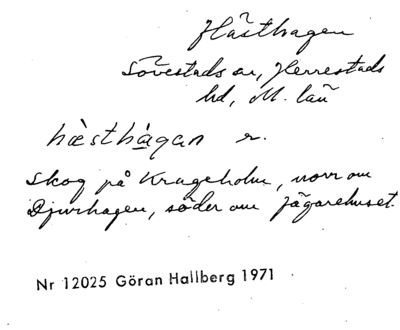 Hästhagen
Sövestads sn, Herrestads
hd, M. län
hæ̀sthàgan r.
Skog på Krageholm, norr om
Djurhagen, söder om Jägarehuset.
Nr 12025 Göran Hallberg 1971